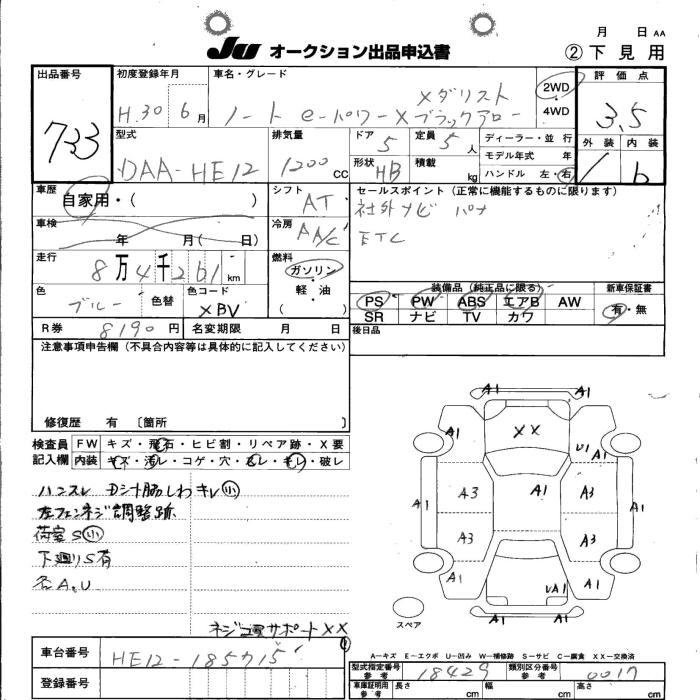 月 日 AA
JU オークション出品申込書 ②下見用
出品番号 733
初度登録年月 H.30 6月
車名・グレード ノート e-パワー X メダリスト ブラックアロー
2WD 4WD
評価点 3.5
外装 内装 b
型式 DAA-HE12
排気量 1200 CC
ドア 5
定員 5人
形状 HB
積載 kg
ディーラー・並行
モデル年式 年
ハンドル 左・右
車歴 自家用・( )
シフト AT
セールスポイント (正常に機能するものに限ります)
社外ナビ パナ
ETC
車検 年 月( 日)
冷房 AA/C
走行 8万4千261km
燃料 ガソリン・軽油
色 ブルー 色替 色コード XBV
装備品 (純正品に限る)
PS PW ABS エアB AW
SR ナビ TV カワ
新車保証書 有・無
R券 8190円
名変期限 月 日
後日品
注意事項申告欄 (不具合内容等は具体的に記入してください)
修復歴 有 〔箇所 〕
検査員記入欄
FW キズ・飛石・ヒビ割・リペア跡・X要
内装 キズ・汚レ・コゲ・穴・スレ・キレ・破レ
ハンスレ Dシート脇しわキレ小
左フェンネジ調整跡
荷室S小
下廻りS有
各A.U
ネジ コアサポートXX
A1 A1
A1 XX A1
U1
A1 A3 A1 A3 A1
A3 A3
A1 UA1 A1
A1 A1
スペア
A-キズ E-エクボ U-凹み W-補修跡 S-サビ C-腐食 XX-交換済
車台番号 HE12-185715
登録番号
型式指定番号 参考 18429
類別区分番号 参考 0017
車庫証明用 参考 長さ cm 幅 cm 高さ cm